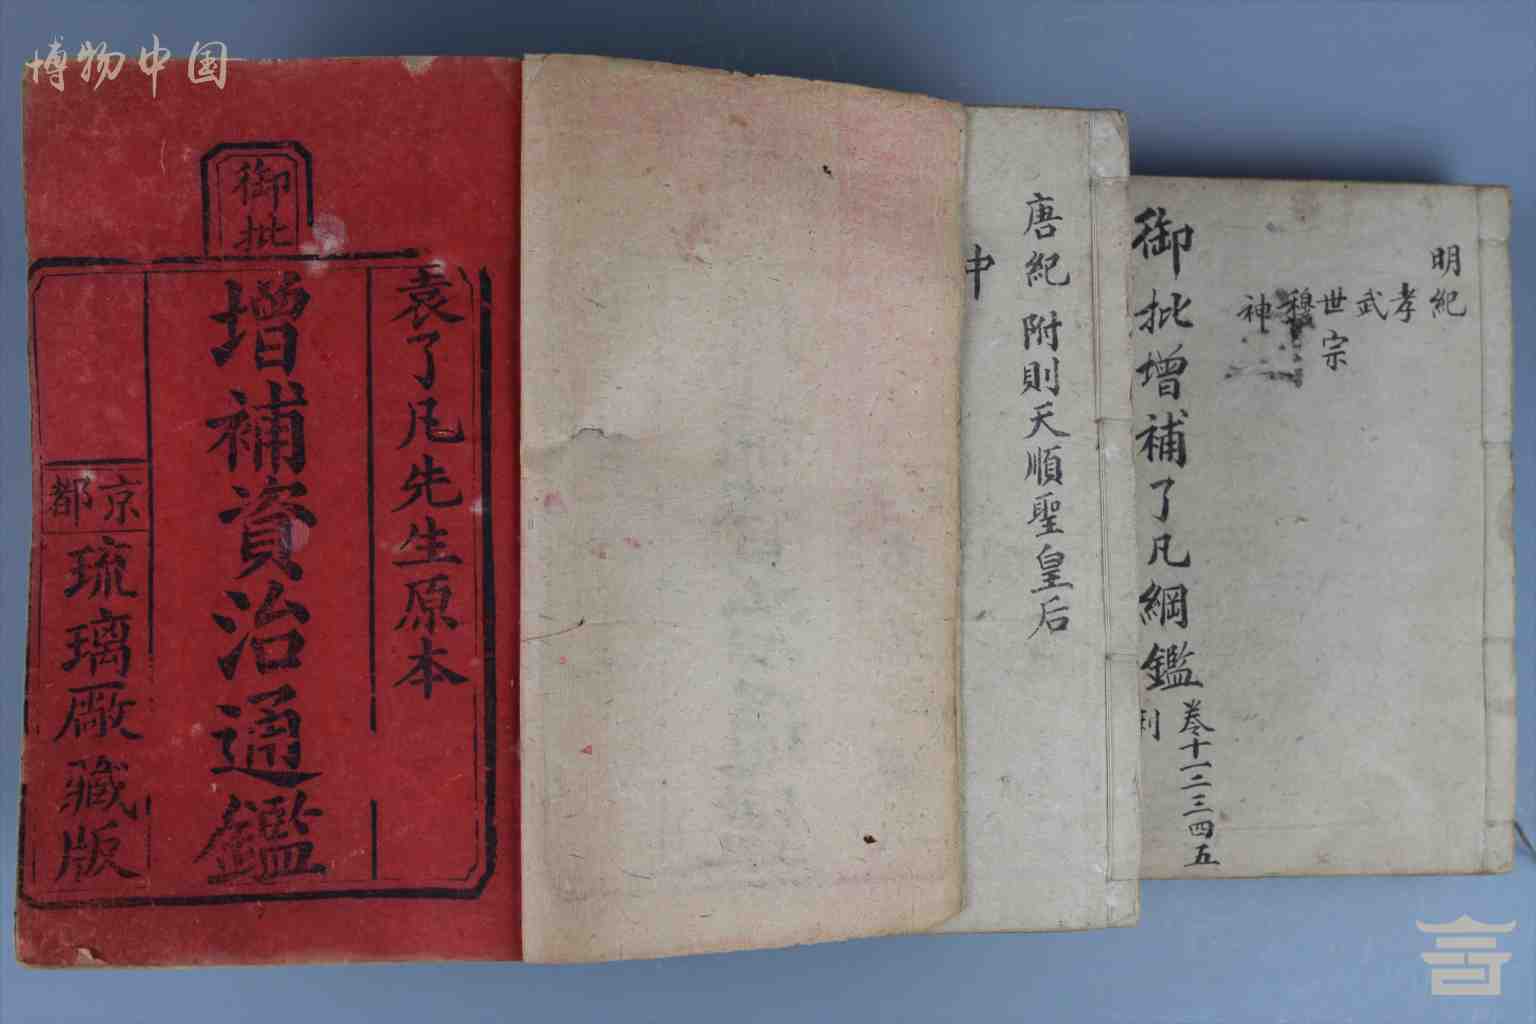 博物中国
御批
袁了凡先生原本
增補資治通鑑
京都
琉璃廠藏版
唐紀附則天順聖皇后
中
明紀
孝
武
世宗
穆
神
御批增補了凡綱鑑
卷十一二三四五
利